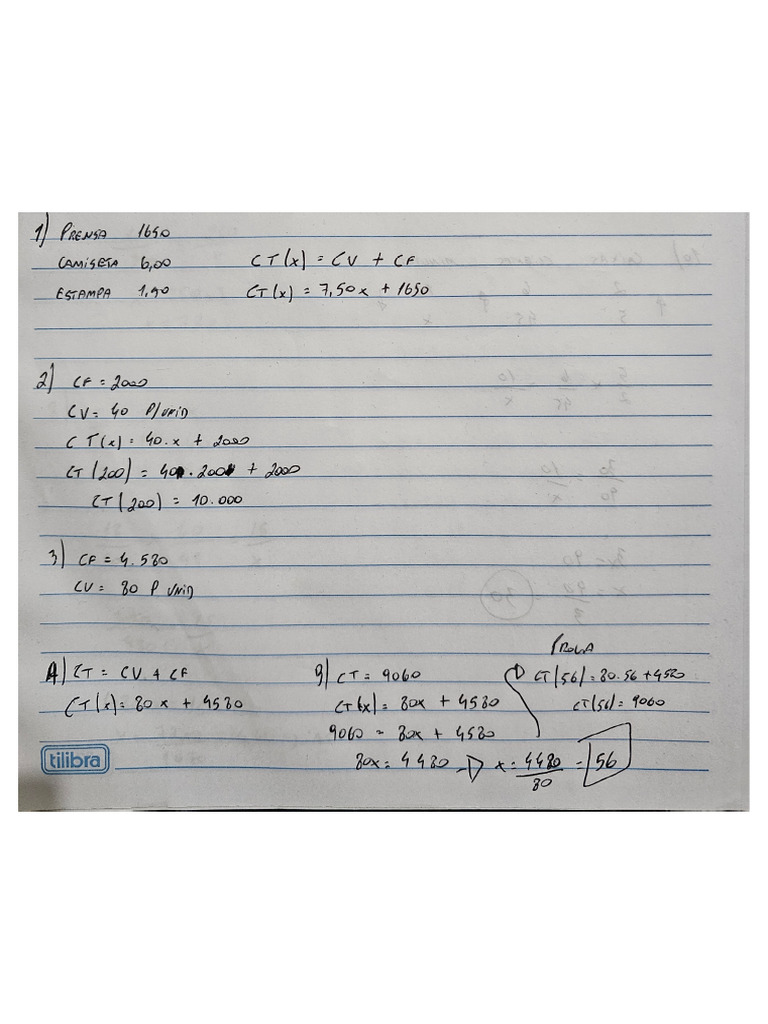 1) PRENSA 1650
CAMISETA 6,00 CT(x) = CV + CF
ESTAMPA 1,90 CT(x) = 7,50x + 1650
2) CF = 2000
CV = 40 P/UNID
CT(x) = 40.x + 2000
CT(200) = 40.200 + 2000
CT(200) = 10.000
3) CF = 4.580
CV = 80 P UNID
PROVA
A) CT = CV + CF 9) CT = 9060 CT(56) = 80.56 + 4580
CT(x) = 80x + 4580 CT(x) = 80x + 4580 CT(56) = 9060
9060 = 80x + 4580
80x = 4480 x = 4480/80 = 56
tilibra